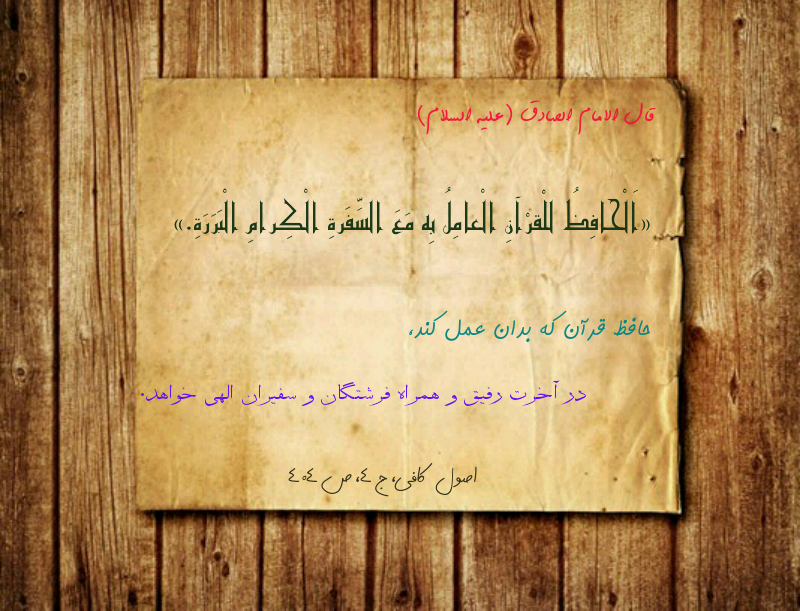 قال الامام الصادق (علیه السلام)
«اَلْحَافِظُ لِلْقرْآنِ الْعَامِلُ بِهِ مَعَ السَّفَرةِ الْكِرامِ الْبَرَرَةِ.»
حافظ قرآن که بدان عمل کند،
در آخرت رفیق و همراه فرشتگان و سفیران الهی خواهد.
اصول کافی، ج ٤، ص ٤٠٤